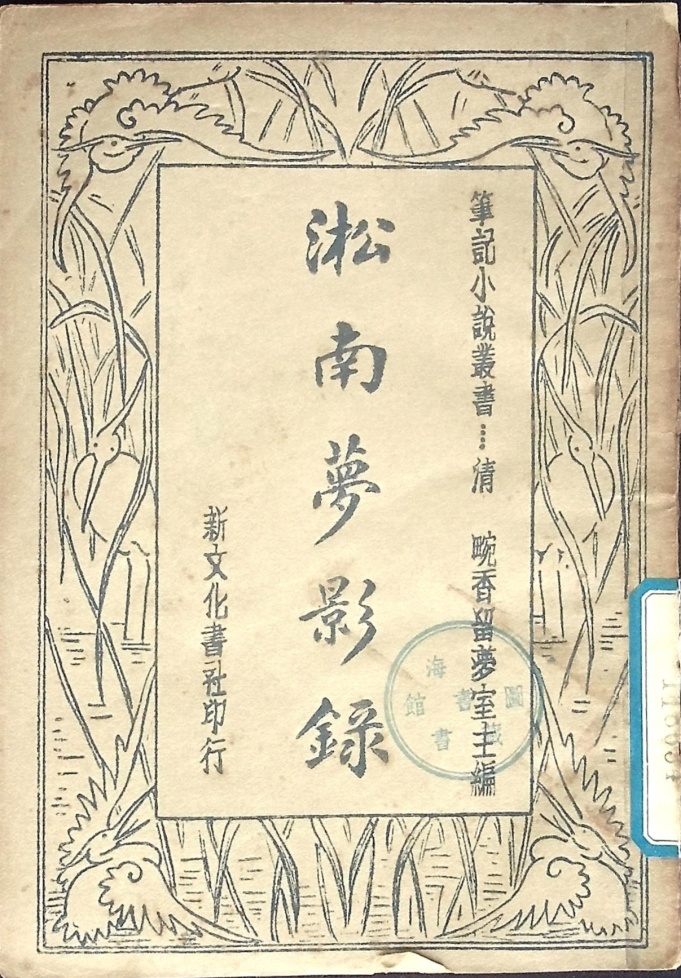 筆記小說叢書…清 畹香留夢室主編
淞南夢影錄
新文化書社印行
書海
圖書館
藏書